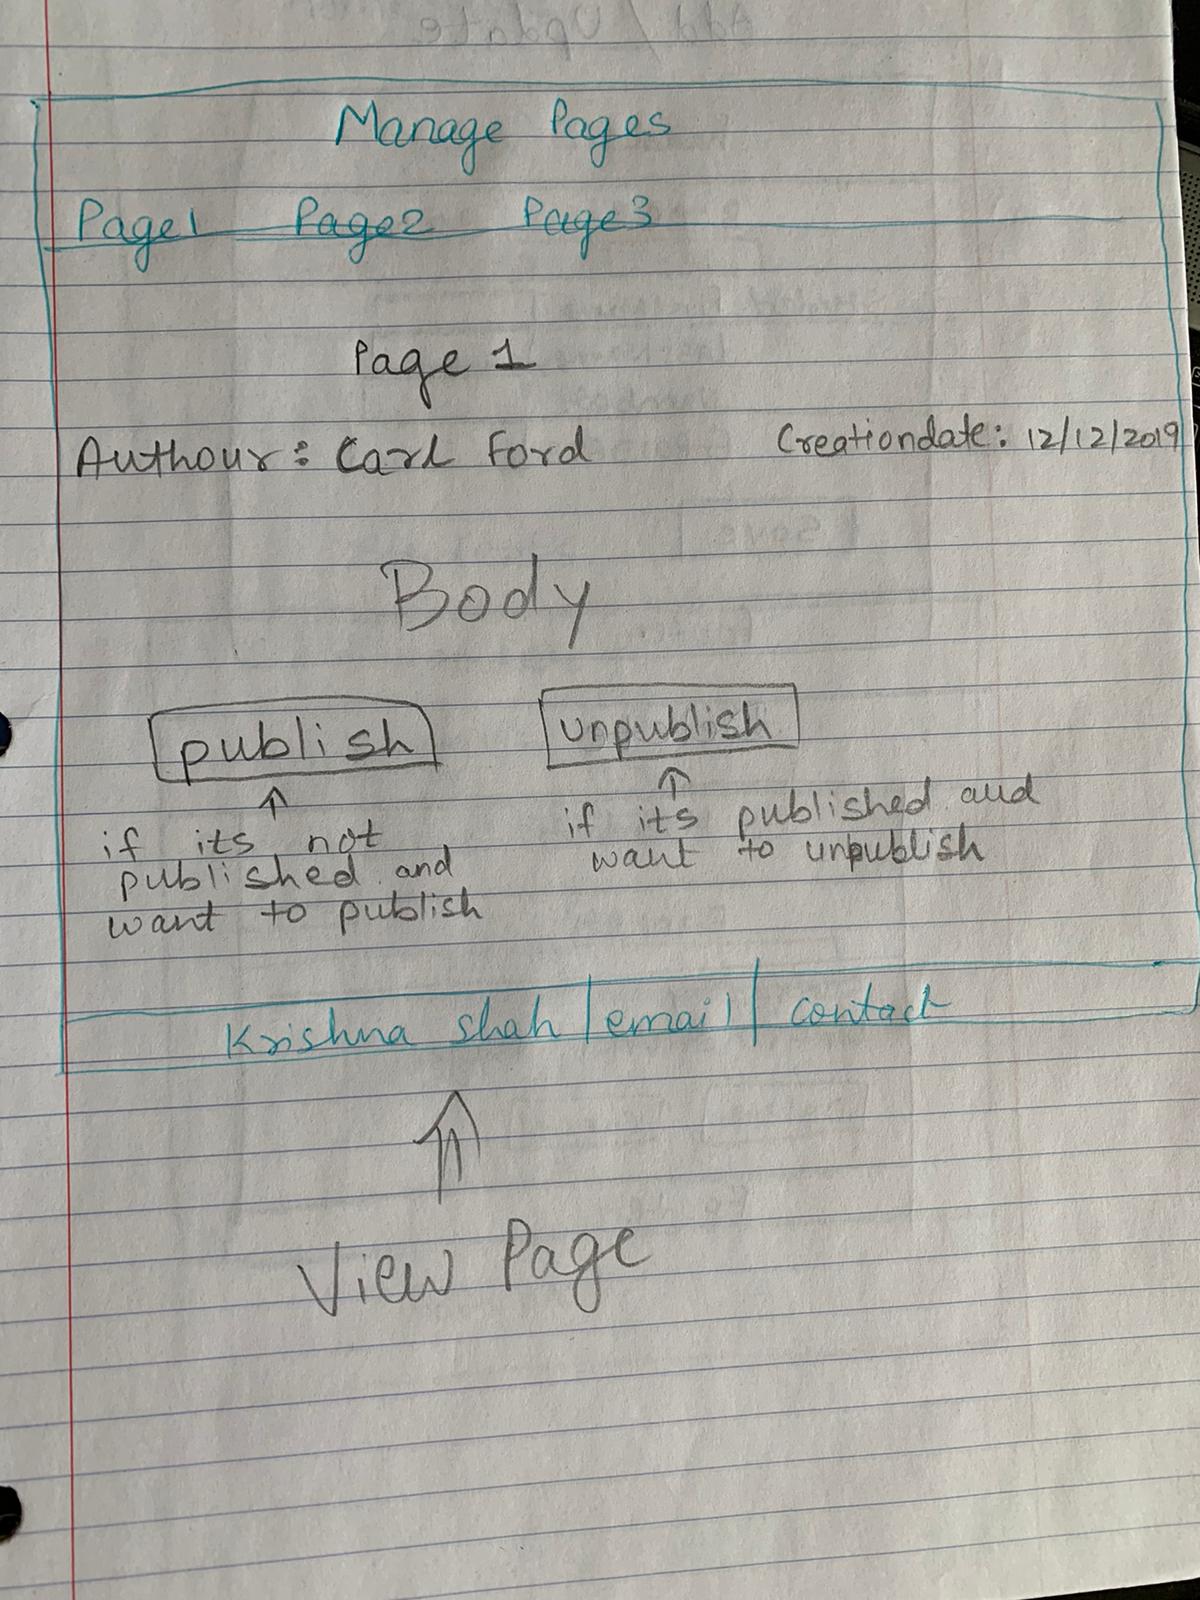 Add / Update
Manage Pages
Page1 Page2 Page3
Page 1
Authour: Carl Ford Creationdate: 12/12/2019
Save
Body
publish unpublish
if its not
published and
want to publish
if its published and
want to unpublish
Krishna shah | email | contact
View Page